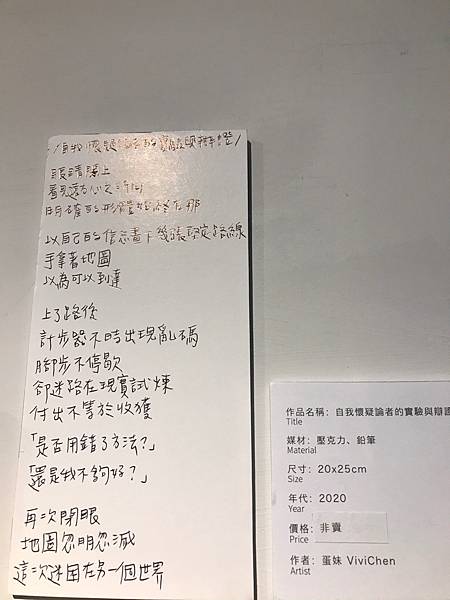 /自我懷疑論者的實驗與辯證/
眼睛閉上
看見
明確的形體始終在那
以自己的信念畫下幾張既定路線
手拿著地圖
以為可以到達
上了路後
計步器不時出現亂碼
腳步不停歇
卻迷路在現實試煉
付出不等於收獲
「是否用錯了方法?」
「還是我不夠好?」
再次閉眼
地圖忽明忽滅
這次迷困在另一個世界
作品名稱: 自我懷疑論者的實驗與辯證
Title
媒材: 壓克力、鉛筆
Material
尺寸: 20x25cm
Size
年代: 2020
Year
價格: 非賣
Price
作者: 蛋妹 ViviChen
Artist